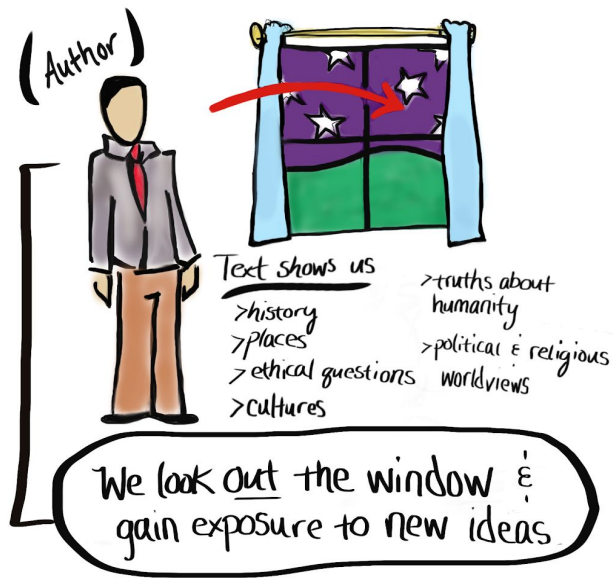 (Author)
Text shows us
>history
>places
>ethical questions
>cultures
>truths about
humanity
>political & religious
worldviews
We look out the window &
gain exposure to new ideas